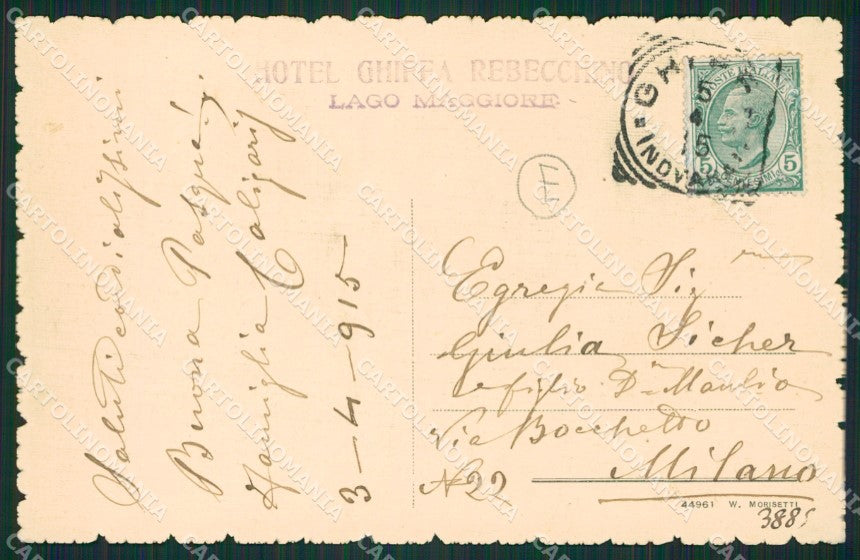 HOTEL GHIFFA REBECCHINO
LAGO MAGGIORE
GHIFFA
5 4 15
(NOVARA)
POSTE ITALIANE
5 5
Saluti cordialissimi
Buona Pasqua,
Famiglia Caligarij
3-4-915
Egregia Sig
Giulia Sicher
e figlio Dr Manlio
Via Bocchetto
N 22 Milano
44961 W. MORISETTI
3885
CARTOLINOMANIA